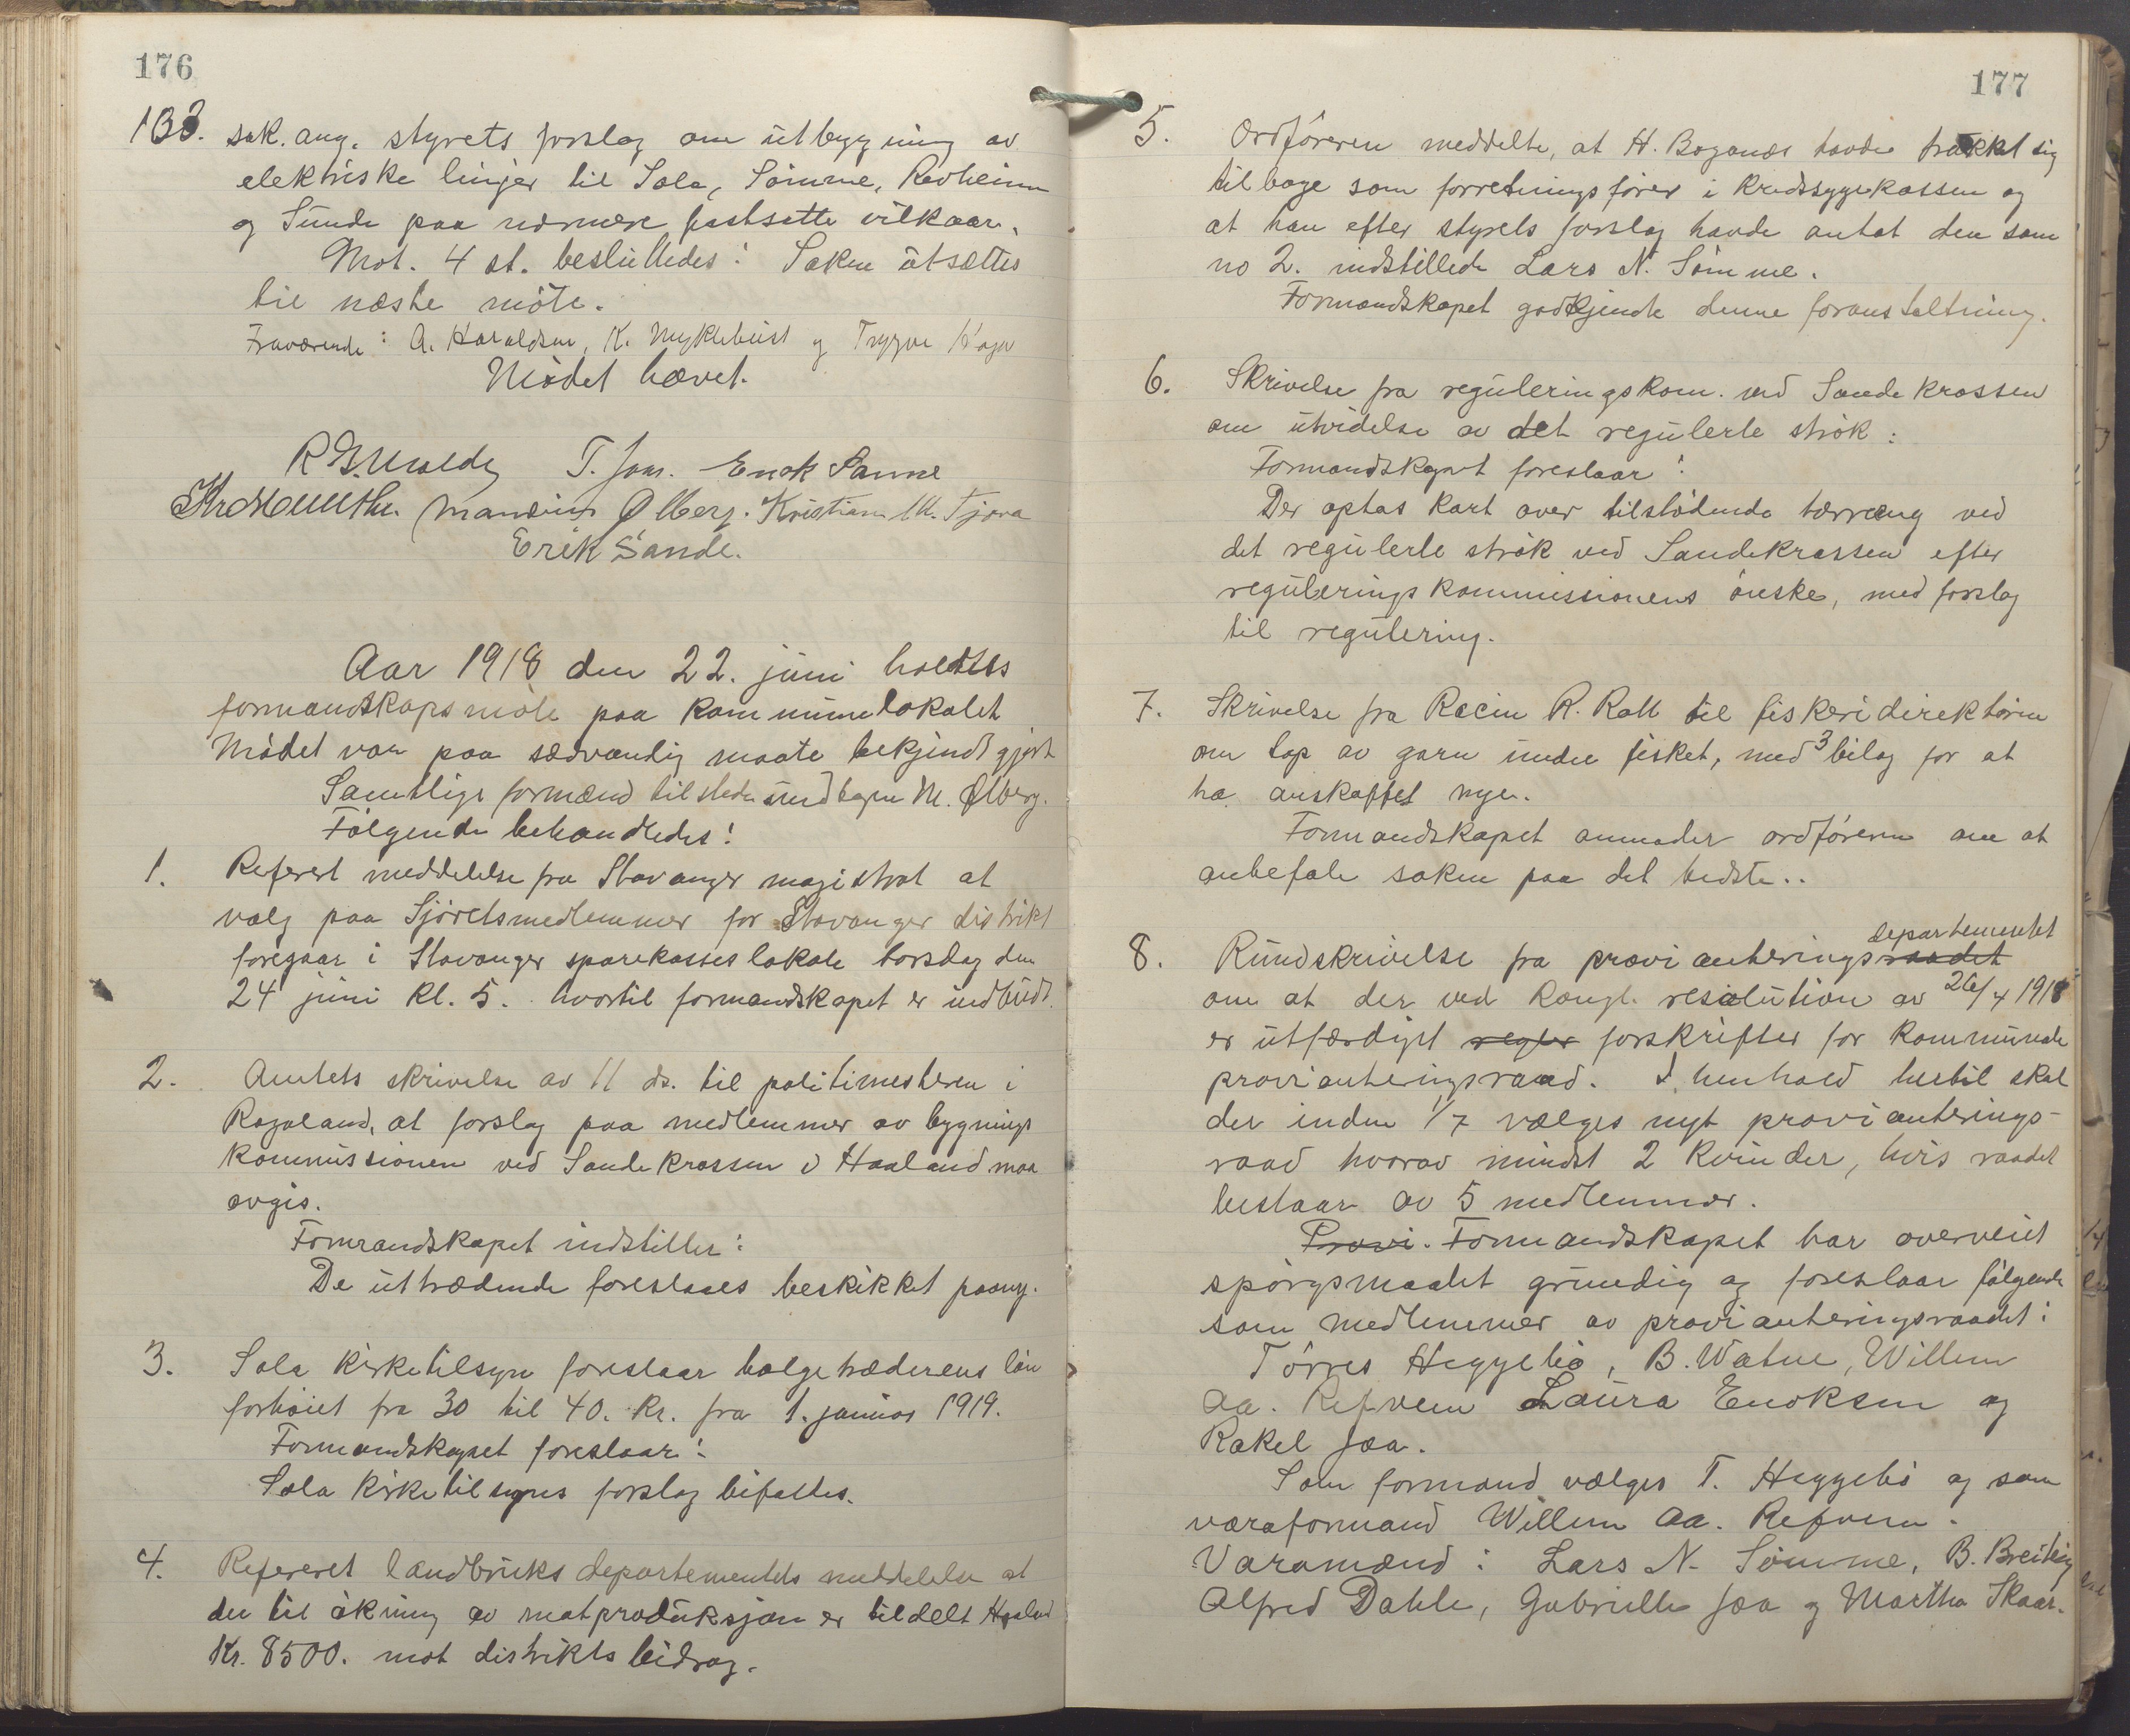 176
133. sak. ang. styrets forslag om utbygning av
elektriske linjer til Sola, Sømme, Revheim
og Sunde paa nærmere fastsatte vilkaar.
Mot. 4 st. besluttedes: Saken utsættes
til næste møte.
Fraværende: A. Haraldsen, K. Myklebust og Trygve
Mødet hævet.
T. Joa. Enok Sanne
Ølberg. Kristian M. Tjora
Erik Sande.
Aar 1918 den 22. juni holdtes
formandskapsmøte paa kommunelokalet
Mødet var paa sædvandlig maate bekjendtgjort
Samtlige formænd tilstede undtagen M. Ølberg.
Følgende behandledes:
1. Referert meddelelse fra Stavanger magistrat at
valg paa Sjøretsmedlemmer for Stavanger distrikt
foregaar i Stavanger sparekasses lokale torsdag den
24 juni kl. 5. hvortil formandskapet er indbudt.
2. Amtets skrivelse av 11 ds. til politimesteren i
Rogaland, at forslag paa medlemmer av bygnings
kommissionen ved Sandekrossen i Haaland maa
avgis.
Formandskapet indstiller:
De uttrædende foreslaaes beskikket paany.
3. Sola kirketilsyn foreslaar bælgetræderens løn
forhøiet fra 30 til 40. kr. fra 1. januar 1919.
Formandskapet foreslaar:
Sola kirketilsyns forslag bifaltes.
4. Refereret landbruksdepartementets meddelelse at
der til økning av matproduksjon er tildelt Haaland
Kr. 8500. mot distriktsbidrag.
177
5. Ordføreren meddelte, at H. Boganæs havde trukket sig
tilbage som forretningsfører i kredssygekassen og
at han efter styrets forslag havde antat den som
no 2. indstillede Lars N. Sømme.
Formandskapet godkjende denne foranstaltning.
6. Skrivelse fra reguleringskom. ved Sandekrossen
om utvidelse av det regulerte strøk:
Formandskapet foreslaar:
Der optas kart over tilstødende tærræng ved
det regulerte strøk ved Sandekrossen efter
reguleringskommissionens ønske, med forslag
til regulering.
7. Skrivelse fra R. Rott til fiskeridirektøren
om tap av garn under fisket, med 3 bilag for at
ha anskaffet nye.
Formandskapet anmoder ordføreren om at
anbefale saken paa det bedste..
8. Rundskrivelse fra provianteringsraadet departementet
om at der ved kongl. resolution av 26/4 1918
er utfærdiget regler forskrifter for kommunale
provianteringsraad. I henhold hertil skal
der inden 1/7 vælges nyt provianterings-
raad hvorav mindst 2 kvinder, hvis raadet
bestaar av 5 medlemmer.
Provi. Formandskapet har overveiet
spørgsmaalet grundig og foreslaar følgende
som medlemmer av provianteringsraadet:
Tørres Heggebø, B. Watne, Willem
Aa. Refvem Laura Enoksen og
Rakel Joa.
Som formand vælges T. Heggebø og som
varaformand Willem Aa. Refvem.
Varamænd: Lars N. Sømme, B. Breiteig
Alfred Dahle, Gabrielle Joa og Martha Skaar.